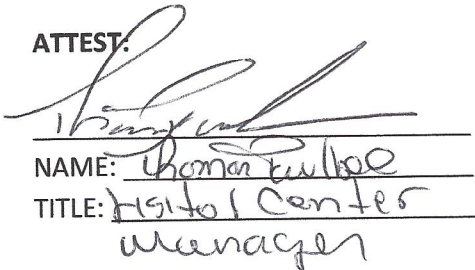 ATTEST:
NAME: Thomas
TITLE: Visitor Center
Manager